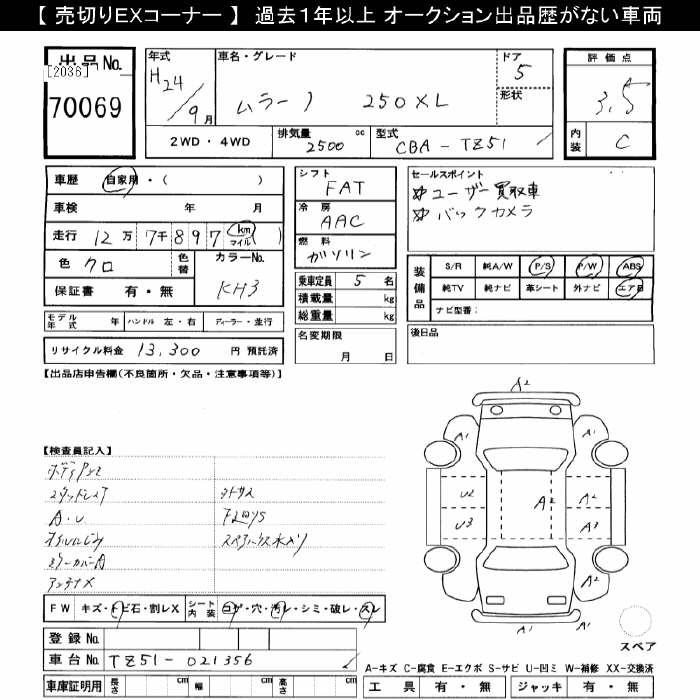 【 売切りEXコーナー 】 過去１年以上 オークション出品歴がない車両
出品No.
[2036]
70069
年式
H24/9月
車名・グレード
ムラーノ 250XL
ドア
5
形状
2WD・4WD
排気量
2500
cc
型式
CBA-TZ51
評価点
3.5
内装
C
車歴
自家用・( )
車検
年 月
走行
12万7千897
km
マイル
( )
色
クロ
色替
カラーNo.
KH3
保証書 有・無
モデル年式
年
ハンドル 左・右
ディーラー・並行
リサイクル料金 13,300 円 預託済
シフト
FAT
冷房
AAC
燃料
ガソリン
乗車定員 5 名
積載量 kg
総重量 kg
名変期限
月 日
セールスポイント
ユーザー買取車
バックカメラ
装備品
S/R 純A/W P/S P/W ABS
純TV 純ナビ 革シート 外ナビ エアB
ナビ型番：
後日品
【出品店申告欄(不良箇所・欠品・注意事項等)】
【検査員記入】
スタッドレス
A・U
ミラーカバーA
アンテナX
スペアハウス水入り
FW キズ・トビ石・割レX
シート内装
コゲ・穴・汚レ・シミ・破レ・スレ
登録No.
車台No. TZ51-021356
車庫証明用 長さ cm 幅 cm 高さ cm
A2
A1
A1
U2
A2
A2
U3
A3
A2
A2
スペア
A-キズ C-腐食 E-エクボ S-サビ U-凹ミ W-補修 XX-交換済
工具 有・無
ジャッキ 有・無